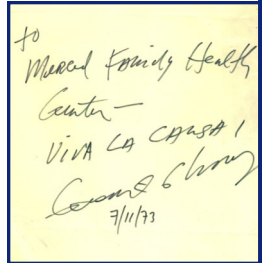 to
Merced Family Health
Center –
VIVA LA CAUSA!
Cesar E Chavez
7/11/73